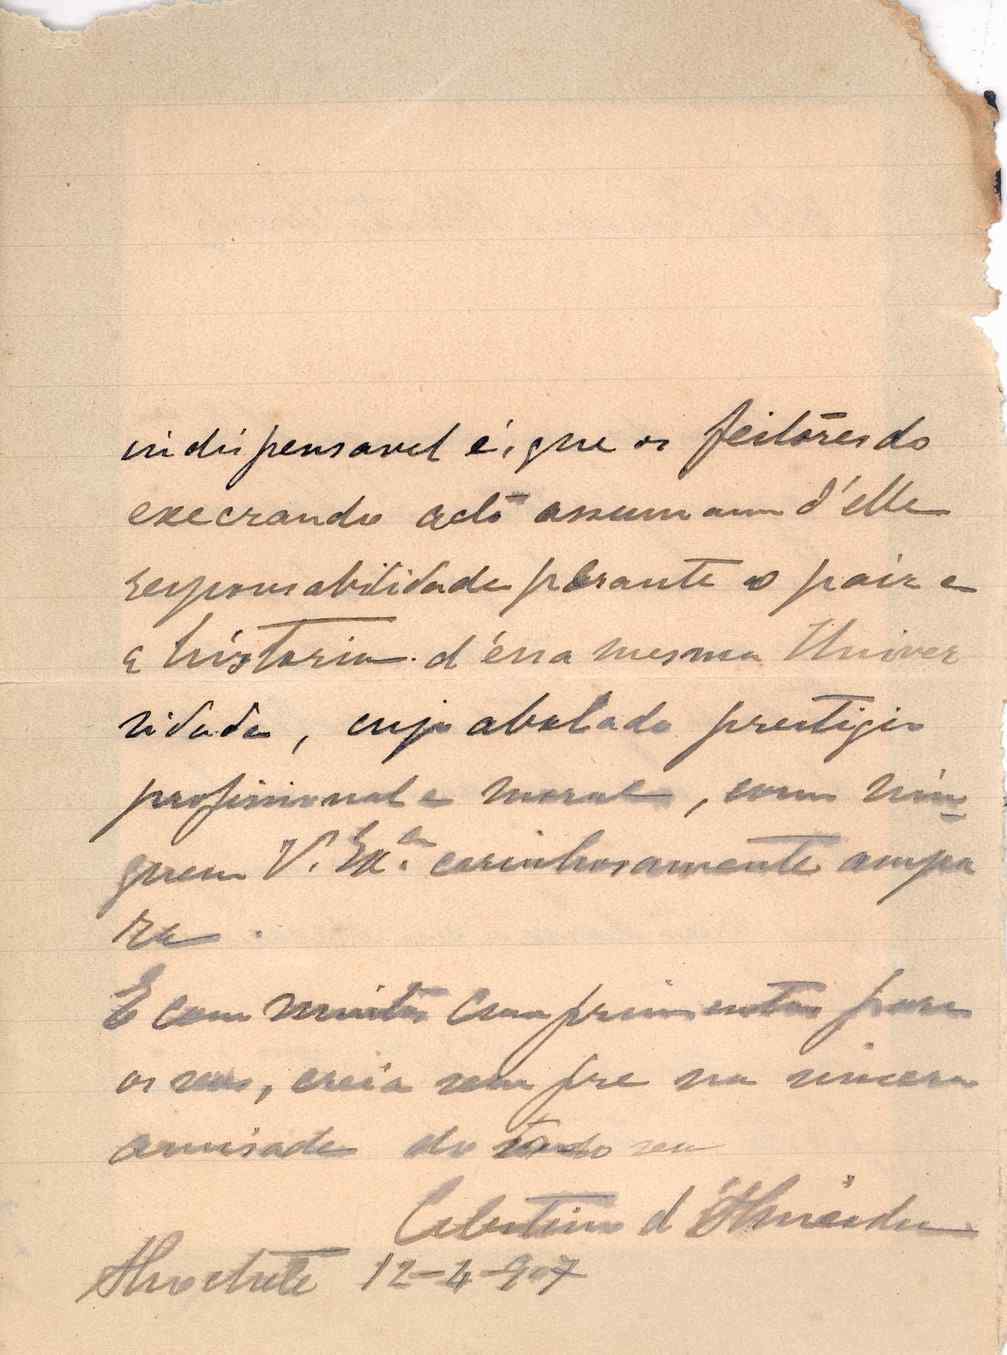 indispensavel é, que os feitores do
execrando acto assumam d'elle
responsabilidade perante o paiz e
a historia d'essa mesma Univer
sidade, cujo abalado prestigio
profissional e moral, como nin-
guem V. Ex.cia carinhosamente ampa
ra.
E com muitos cumprimentos para
os seus, creia sempre na sincera
amisade do todo seu
Celestino d'Almeida
Alcochete 12-4-907